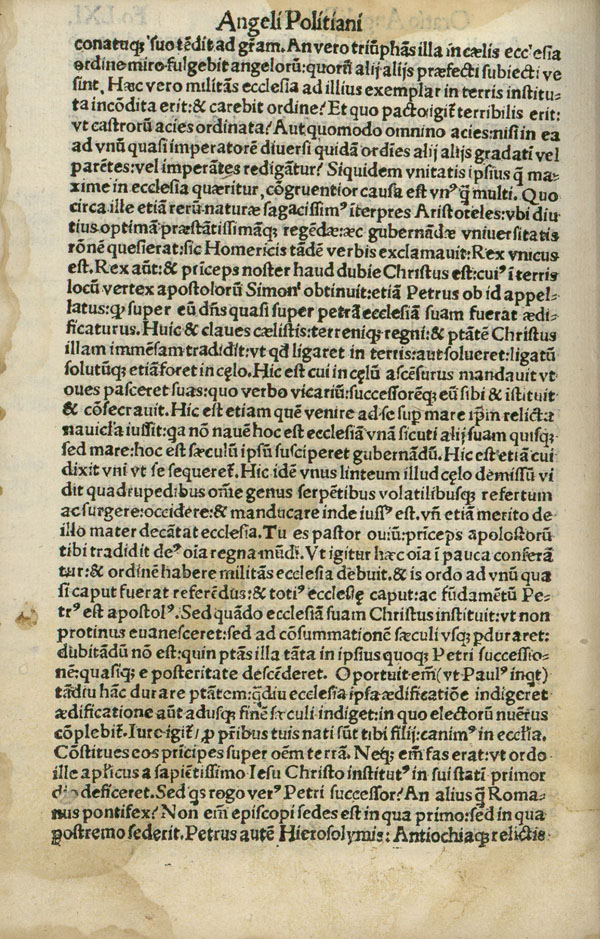 Angeli Politiani
conatuq; suo tēdit ad gr̄am. An vero triūphās illa in cælis ecc'esia
ordine miro fulgebit angelorū: quorū alij alijs præfecti subiecti ve
sint. Hæc vero militās ecclesia ad illius exemplar in terris institu-
ta incōdita erit: & carebit ordine? Et quo pacto igit̄ terribilis erit:
vt castrorū acies ordinata? Aut quomodo omnino acies: nisi in ea
ad vnū quasi imperatorē diversi quidā ordīes alij alijs gradati vel
parētes: vel imperātes redigāt̄ur? Siquidem vnitatis ipsius q̄ ma-
xime in ecclesia quæritur, cōgruentior causa est vnꝰ q̄ multi. Quo
circa ille etiā rerū naturæ sagacissimꝰ īterpres Aristoteles: vbi diu
tius optimā præstātissimāq; regēdæ: ac gubernādæ vniuersitatis
rōnē quesierat: sic Homericis tādē verbis exclamauit: Rex vnicus
est. Rex aūt: & prīceps noster haud dubie Christus est: cuiꝰ ī terris
locū vertex apostolorū Simon' obtinuit: etiā Petrus ob id appel-
latus: qꝫ super eū dn̄s quasi super petrā ecclesiā suam fuerat ædi-
ficaturus. Huic & claues cælistis: terreniq; regni: & ptātē Christus
illam immēsam tradidit: vt qd̄ ligaret in terris: aut solueret: ligatū
solutūq; etiā foret in cęlo. Hic est cui in cęlū ascēsurus mandauit vt
oues pasceret suas: quo verbo vicariū: successorēq; eū sibi & īstituit
& cōsecrauit. Hic est etiam quē venire ad se suꝑ mare ip̄m relicta
nauicl̄a iussit: qa nō nauē hoc est ecclesiā vnā sicuti alij suam quisq;
sed mare: hoc est sæculū ipsū susciperet gubernādū. Hic est etiā cui
dixit vni vt se sequeret̄. Hic idē vnus linteum illud cęlo demissū vi
dit quadrupedibus om̄e genus serpētibus volatilibusq; refertum
ac surgere: occidere: & manducare inde iussꝰ est. vn̄ etiā merito de
illo mater decātat ecclesia. Tu es pastor ouiū: prīceps apolostorū
tibi tradidit deꝰ oīa regna mūdi. Vt igitur hæc oīa ī pauca conferā
tur: & ordinē habere militās ecclesia debuit. & is ordo ad vnū qua
si caput fuerat referēdus: & totiꝰ ecclesię caput: ac fūdamētū Pe-
trꝰ est apostolꝰ. Sed quādo ecclesiā suam Christus instituit: vt non
protinus euanesceret: sed ad cōsummationē sæculi vsq; ꝑduraret:
dubitādū nō est: quin ptās illa tāta in ipsius quoq; Petri successio-
nē: quasiq; e posteritate descēderet. Oportuit em̄ (vt Paulꝰ inqt̄)
tādiu hāc durare ptātem: q̄diu ecclesia ipsa ædificatiōe indigeret
ædificatione aūt adusq; finē sæculi indiget: in quo electorū nuērus
cōplebit̄. Iure igit̄: ꝓ pribus tuis nati sūt tibi filij: canimꝰ in ecclīa.
Cōstitues eos prīcipes super oēm terrā. Neq; em̄ fas erat: vt ordo
ille apl̄icus a sapiētissimo Iesu Christo institutꝰ in sui statī primor
dio deficeret. Sed qs rogo verꝰ Petri successor? An alius q̄ Roma-
nus pontifex? Non em̄ episcopi sedes est in qua primo: sed in qua
postremo sederit. Petrus autē Hierosolymis: Antiochiaq; relictis